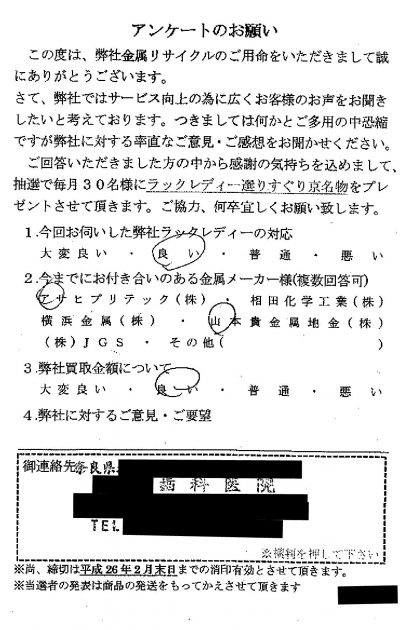 アンケートのお願い
この度は、弊社金属リサイクルのご用命をいただきまして誠
にありがとうございます。
さて、弊社ではサービス向上の為に広くお客様のお声をお聞き
したいと考えております。つきましては何かとご多用の中恐縮
ですが弊社に対する率直なご意見・ご感想をお聞かせください。
ご回答いただきました方の中から感謝の気持ちを込めまして、
抽選で毎月30名様にラックレディー選りすぐり京名物をプレ
ゼントさせて頂きます。ご協力、何卒宜しくお願い致します。
1.今回お伺いした弊社ラックレディーの対応
大変良い ・ 良い ・ 普通 ・ 悪い
2.今までにお付き合いのある金属メーカー様(複数回答可)
アサヒプリテック(株) ・ 相田化学工業(株)
横浜金属(株) ・ 山本貴金属地金(株)
(株)JGS ・ その他( )
3.弊社買取金額について
大変良い ・ 良い ・ 普通 ・ 悪い
4.弊社に対するご意見・ご要望
御連絡先 奈良県
歯科医院
TEL
※横判を押して下さい
※尚、締切は平成26年2月末日までの消印有効とさせて頂きます。
※当選者の発表は商品の発送をもってかえさせて頂きます